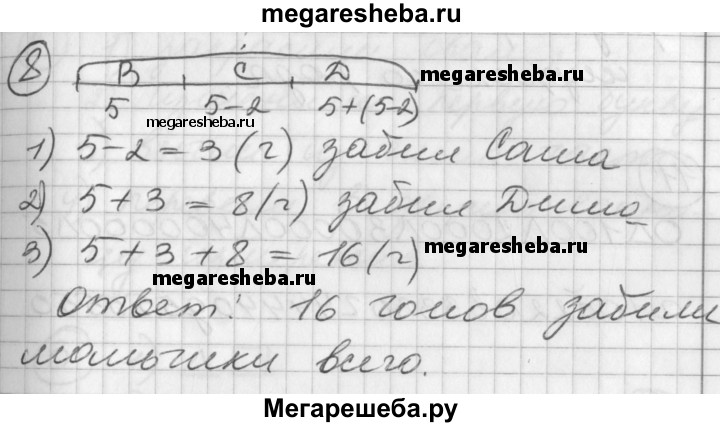 megaresheba.ru
8
В С D
megaresheba.ru
5 5-2 5+(5-2)
megaresheba.ru
1) 5-2=3(г) забил Саша
2) 5+3=8(г) забил Дима
3) 5+3+8=16(г)
megaresheba.ru
megaresheba.ru
Ответ: 16 голов забили
мальчики всего.
Мегарешеба.ру